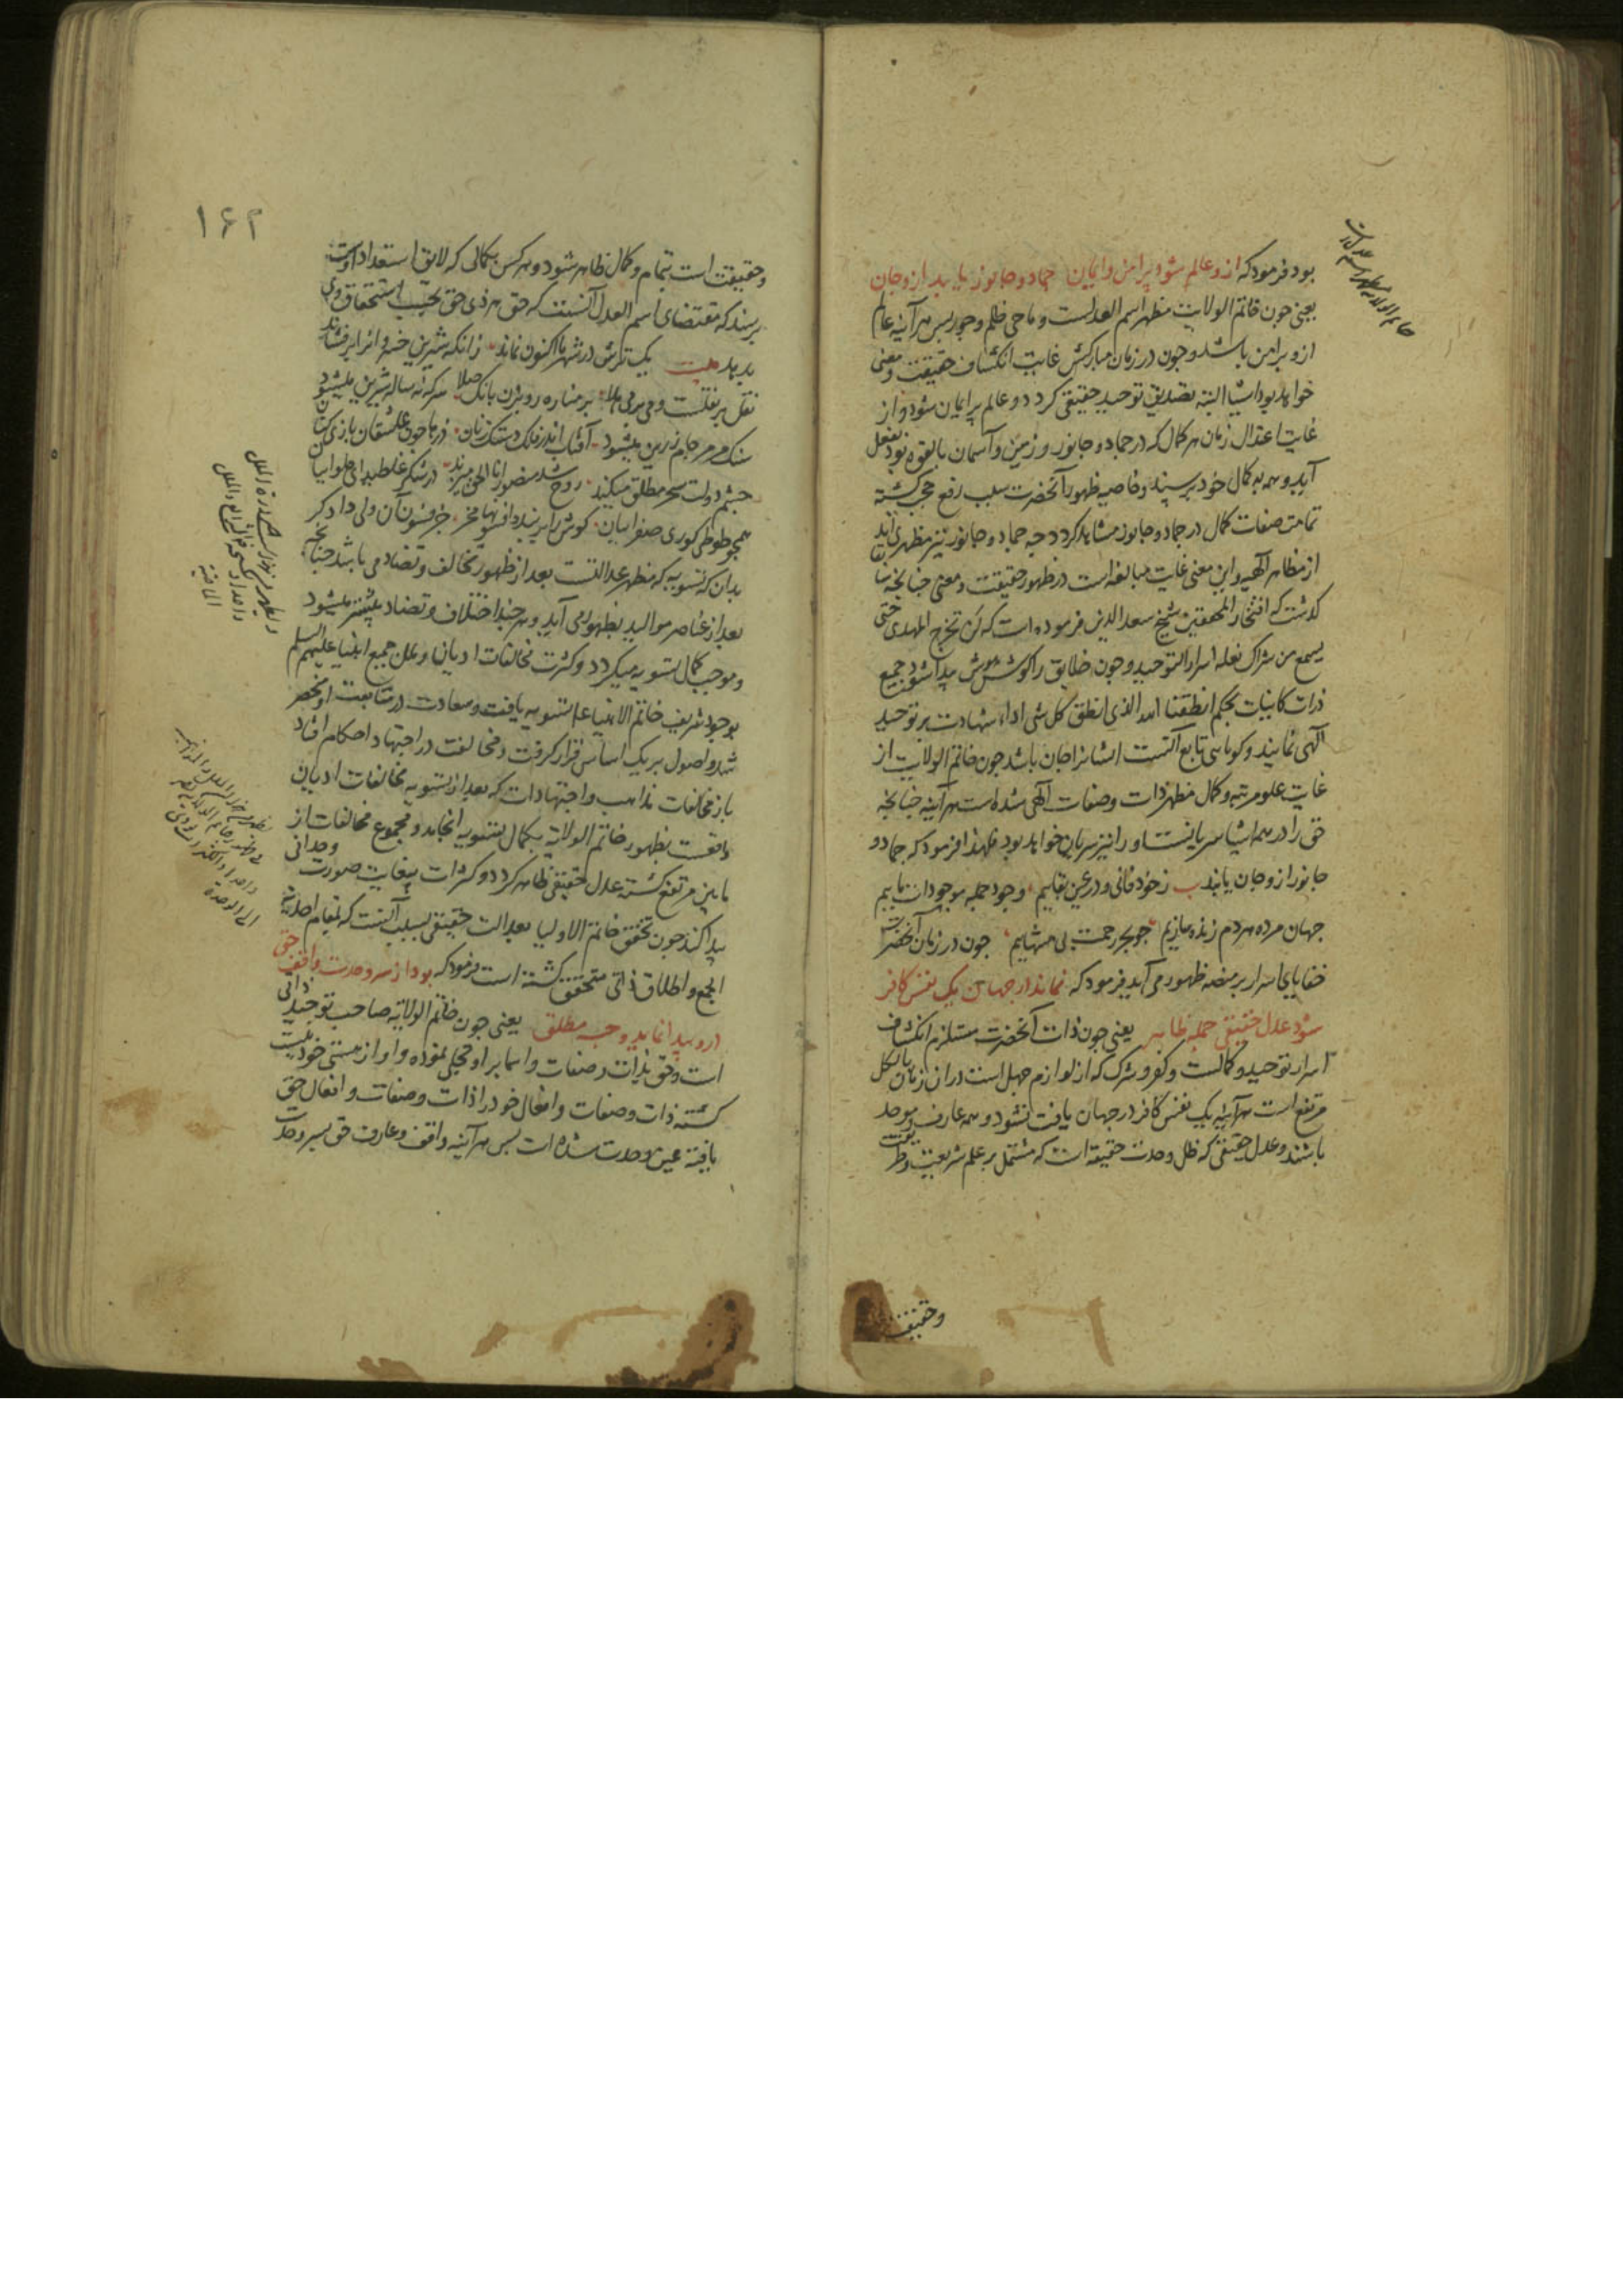 بود فرمود که ازو عالم شود پر امن و ایمان جماد و جانور یابد ازو جان
یعنی چون خاتم الولایت مظهر اسم العدلست و ماحی ظلم و جور پس هر آینه عالم
ازو پر امن باشد و چون در زمان مبارکش غایت انکشاف حقیقت و معنی
خواهد بود اشیا البته تصدیق توحید حقیقی کردد و عالم پر ایمان شود و از
غایت اعتدال زمان هر کمال که در جماد و جانور و زمین و آسمان بالقوه بود بفعل
آید و همه به کمال خود برسند و خاصیه ظهور آنحضرت سبب رفع حجب کشته
تمامت صفات کمال در جماد و جانور مشاهد کردد چه جماد و جانور نیز مظهری اند
از مظاهر الهیه و این معنی غایت مبالغه است در ظهور حقیقت و معنی چنانچه
کذشت که افتخار المحققین شیخ سعد الدین فرموده است که لن تخرج المهدی حتی
یسمع من شراک نعله اسرار التوحید و چون خلایق را کوش هوش پیدا شود جمیع
ذرات کاینات بحکم انطقنا الله الذی انطق کل شی اداء شهادت بر توحید
الهی نمایند و کویاسی تابع آنست اشیا را جان باشد چون خاتم الولایت از
غایت علو مرتبه و کمال مظهر ذات و صفات الهی شده است هر آینه چنانچه
حق را در همه اشیا سریانست او را نیز سریان خواهد بود فلهذا فرمود که جماد و
جانور ازو جان یابند ب ز خود فانی و در عین بقاییم وجود جمله موجودات ماییم
جهان مرده هر دم زنده سازیم چو بحر رحمت بی منتهاییم چون در زمان آنحضرت
خفایای اسرار بر منصه ظهور می آید فرمود که نماند در جهان یک نفس کافر
شود عدل حقیقی جمله ظاهر یعنی چون ذات آنحضرت مستلزم انکشاف
اسرار توحید و کمالست و کفر و شرک که از لوازم جهل است در ان زمان بالکل
مرتفع است هر آینه یک نفس کافر در جهان یافت نشود و همه عارف و موحد
باشند و عدل حقیقی که ظل وحدت حقیقه است که مشتمل بر علم شریعت و طریقت
و حقیقت
۱۶۲
و حقیقت است بتمام و کمال ظاهر شود و هر کس بکمالی که لایق استعداد اوست
برسند که مقتضای اسم العدل آنست که حق هر ذی حق بحسب استحقاق وی
بدهد یک ترش در شهر ما اکنون نماند زانکه شیرین خسروانرا برفشاند
نقل بر نقلست و می بر می هلا بر مناره رو بزن بانک صلا سرکه نه ساله شیرین میشود
سنک مرمر جام زرین میشود آفتاب اندر فلک دستک زنان ذره ها چون عاشقان بازی کنان
چشم دولت سحر مطلق میکند روح شد منصور انا الحق میزند در شکر غلطید ای حلواییان
همچو طوطی کوری صفراییان کوش را بربند و افسونها مخر جز فسون آن ولی دادکر
بدان که تسویه که مظهر عدالتست بعد از ظهور تخالف و تضاد می باشد چنانچه
بعد از عناصر موالید بظهور می آید و هر چند اختلاف و تضاد بیشتر میشود
و موجب کمال تسویه میکردد و کثرت مخالفات ادیان و ملل جمیع انبیا علیهم السلم
بوجود شریف خاتم الانبیا علم تسویه یافت و سعادت در متابعت او منحصر
شد و اصول بر یک اساس قرار کرفت و مخالفت در اجتهاد احکام افتاد
باز مخالفات مذاهب و اجتهادات که بعد از تسویه مخالفات ادیان
واقعست بظهور خاتم الولایه بکمال تسویه انجامد و مجموع مخالفات از
مابین مرتفع کشته عدل حقیقی ظاهر کردد و کثرات بیغایت صورت وحدانی
پیدا کند چون تحقق خاتم الاولیا بعدالت حقیقی بسبب آنست که بمقام احدیة
الجمع و اطلاق ذاتی متحقق کشته است فرمود که بود از سر وحدت واقف حق
درو پیدا نماید وجه مطلق یعنی چون خاتم الولایه صاحب توحید ذاتی
است و حق بذات و صفات و اسما بر او تجلی نموده و او از هستی خود نیست
کشته ذات و صفات و افعال خود را ذات و صفات و افعال حق
یافته عین وحدت شده است پس هر آینه واقف و عارف حق بسر وحدت